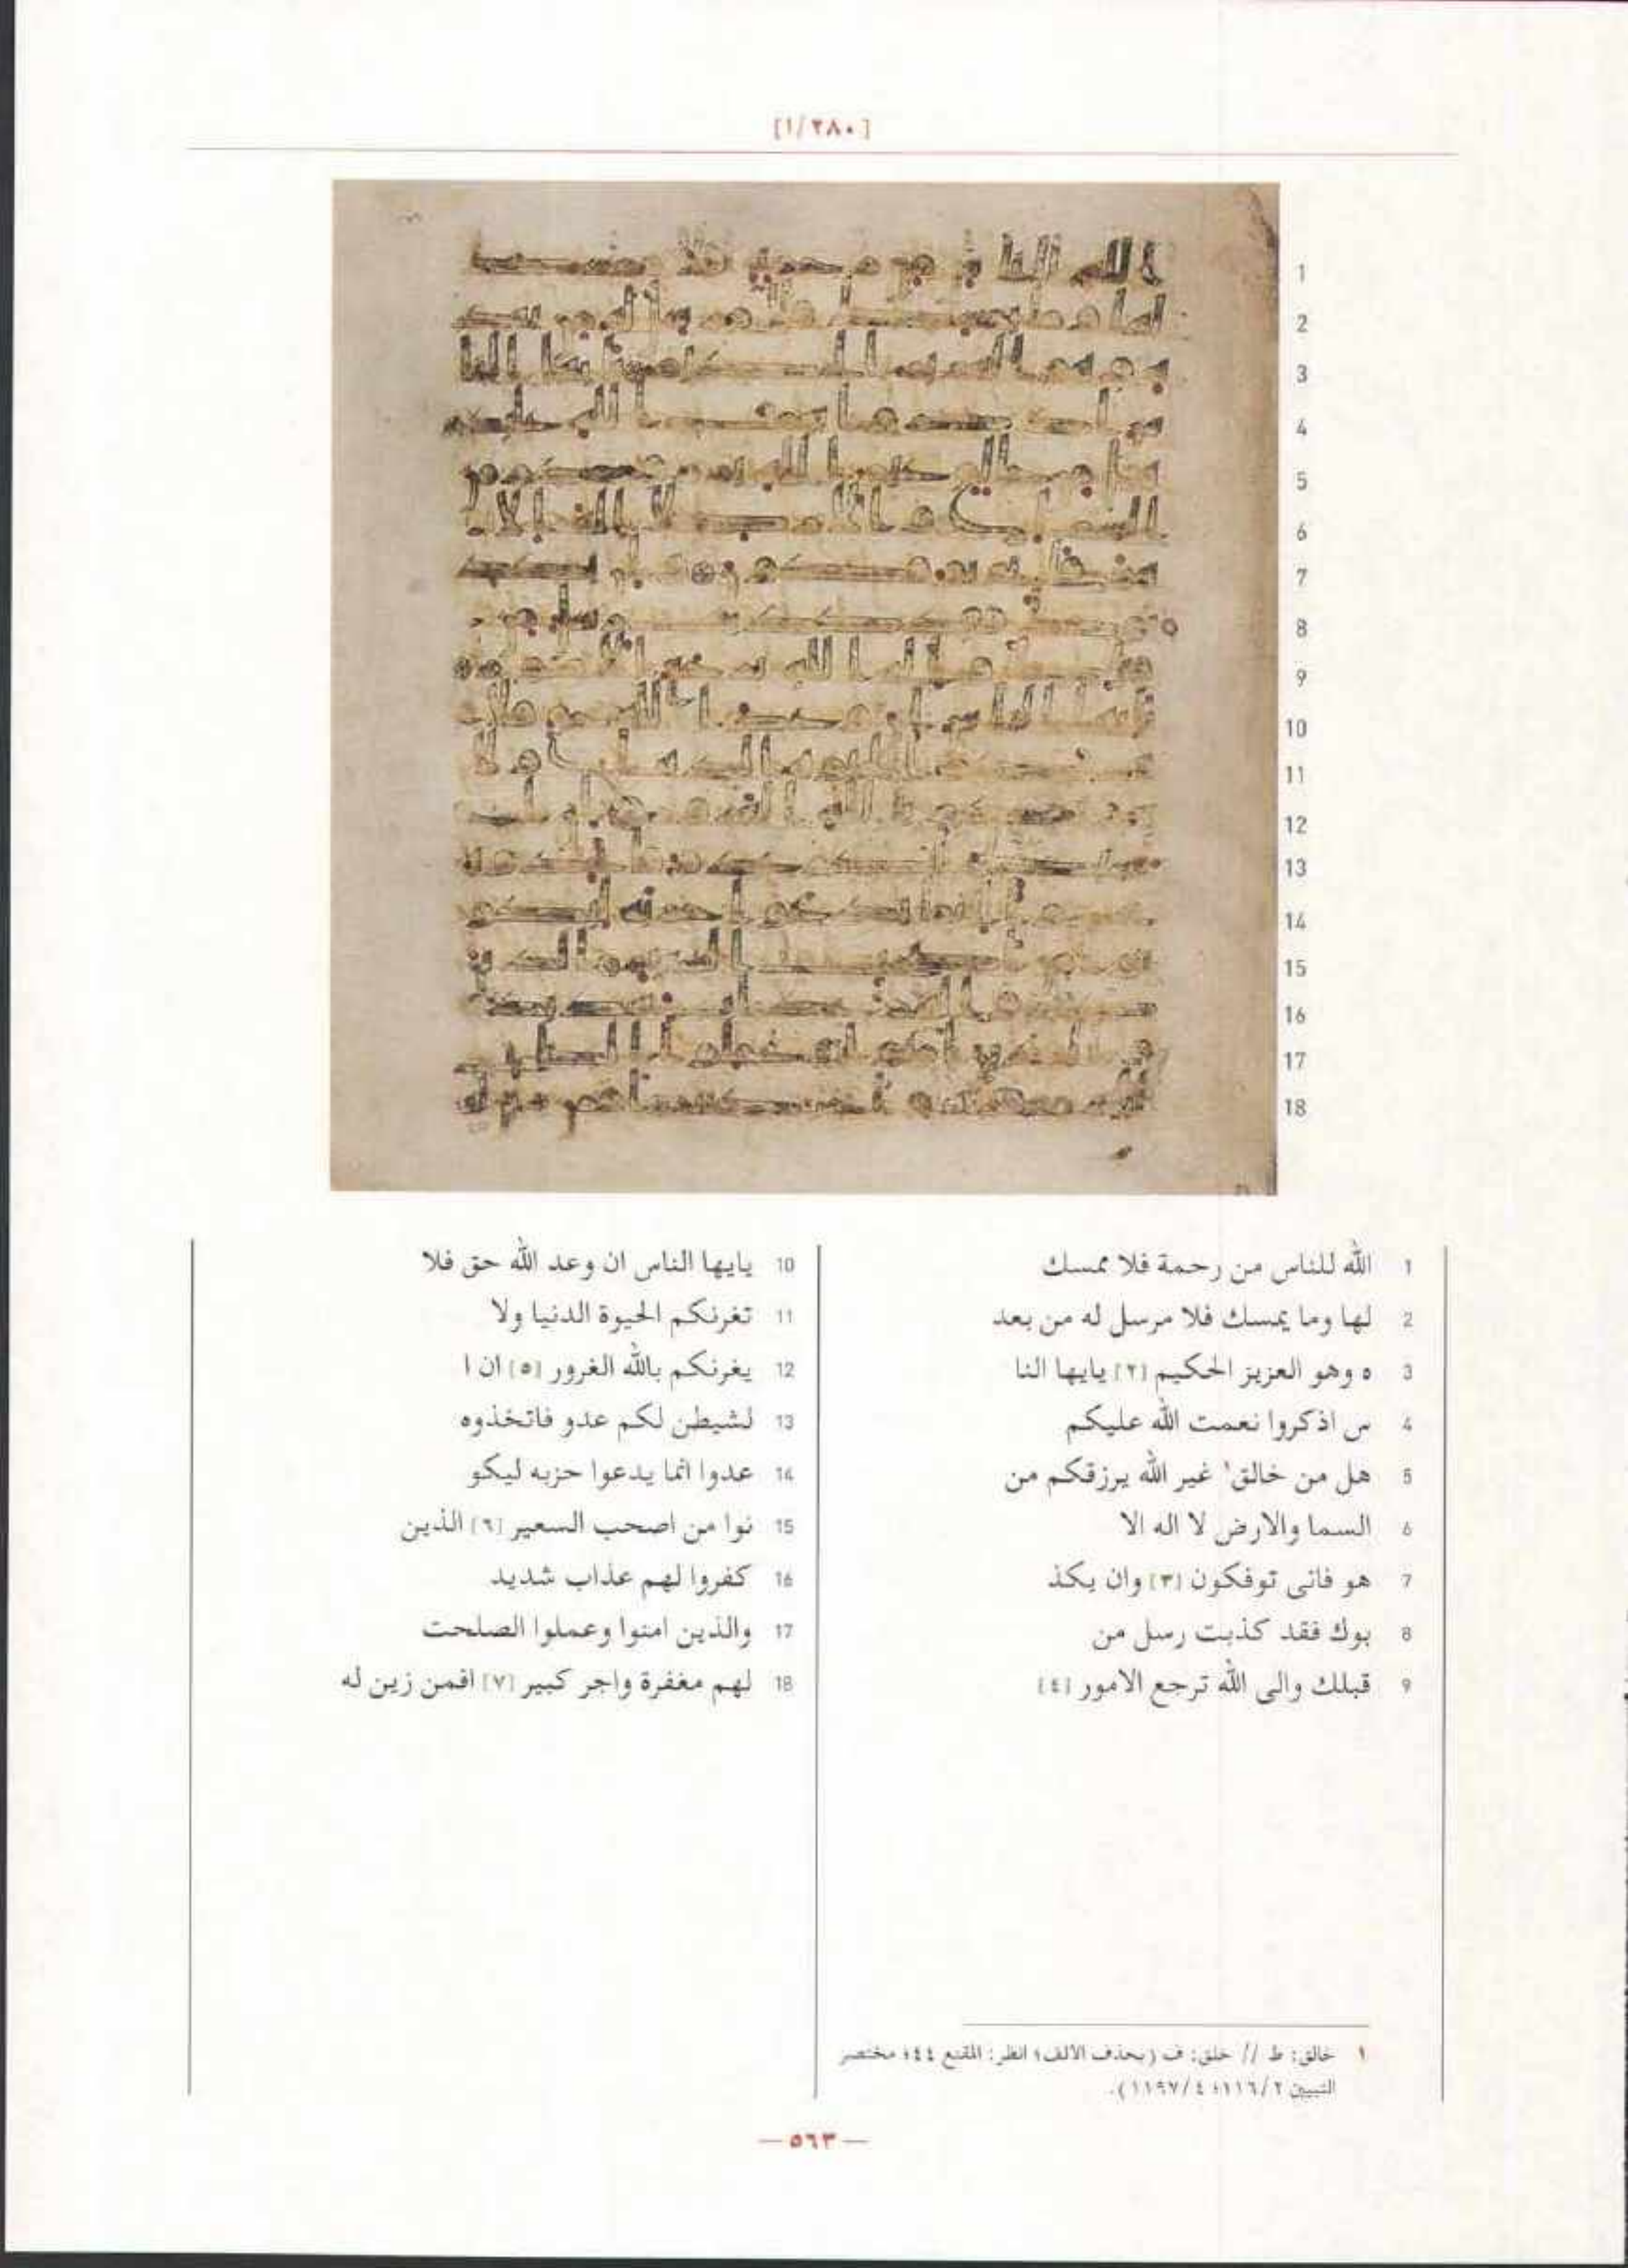 [١/٢٨٠]
1 الله للناس من رحمة فلا ممسك
2 لها وما يمسك فلا مرسل له من بعد
3 ه وهو العزيز الحكيم [٢] يايها النا
4 س اذكروا نعمت الله عليكم
5 هل من خالق١ غير الله يرزقكم من
6 السما والارض لا اله الا
7 هو فانى توفكون [٣] وان يكذ
8 بوك فقد كذبت رسل من
9 قبلك والى الله ترجع الامور [٤]
10 يايها الناس ان وعد الله حق فلا
11 تغرنكم الحيوة الدنيا ولا
12 يغرنكم بالله الغرور [٥] ان ا
13 لشيطن لكم عدو فاتخذوه
14 عدوا انما يدعوا حزبه ليكو
15 نوا من اصحب السعير [٦] الذين
16 كفروا لهم عذاب شديد
17 والذين امنوا وعملوا الصلحت
18 لهم مغفرة واجر كبير [٧] افمن زين له
١ خالق: ط // خلق: ف (بحذف الالف؛ انظر: المقنع ٤٤؛ مختصر
التبيين ١١٦/٢؛ ١١٩٧/٤).
— ٥٦٣ —